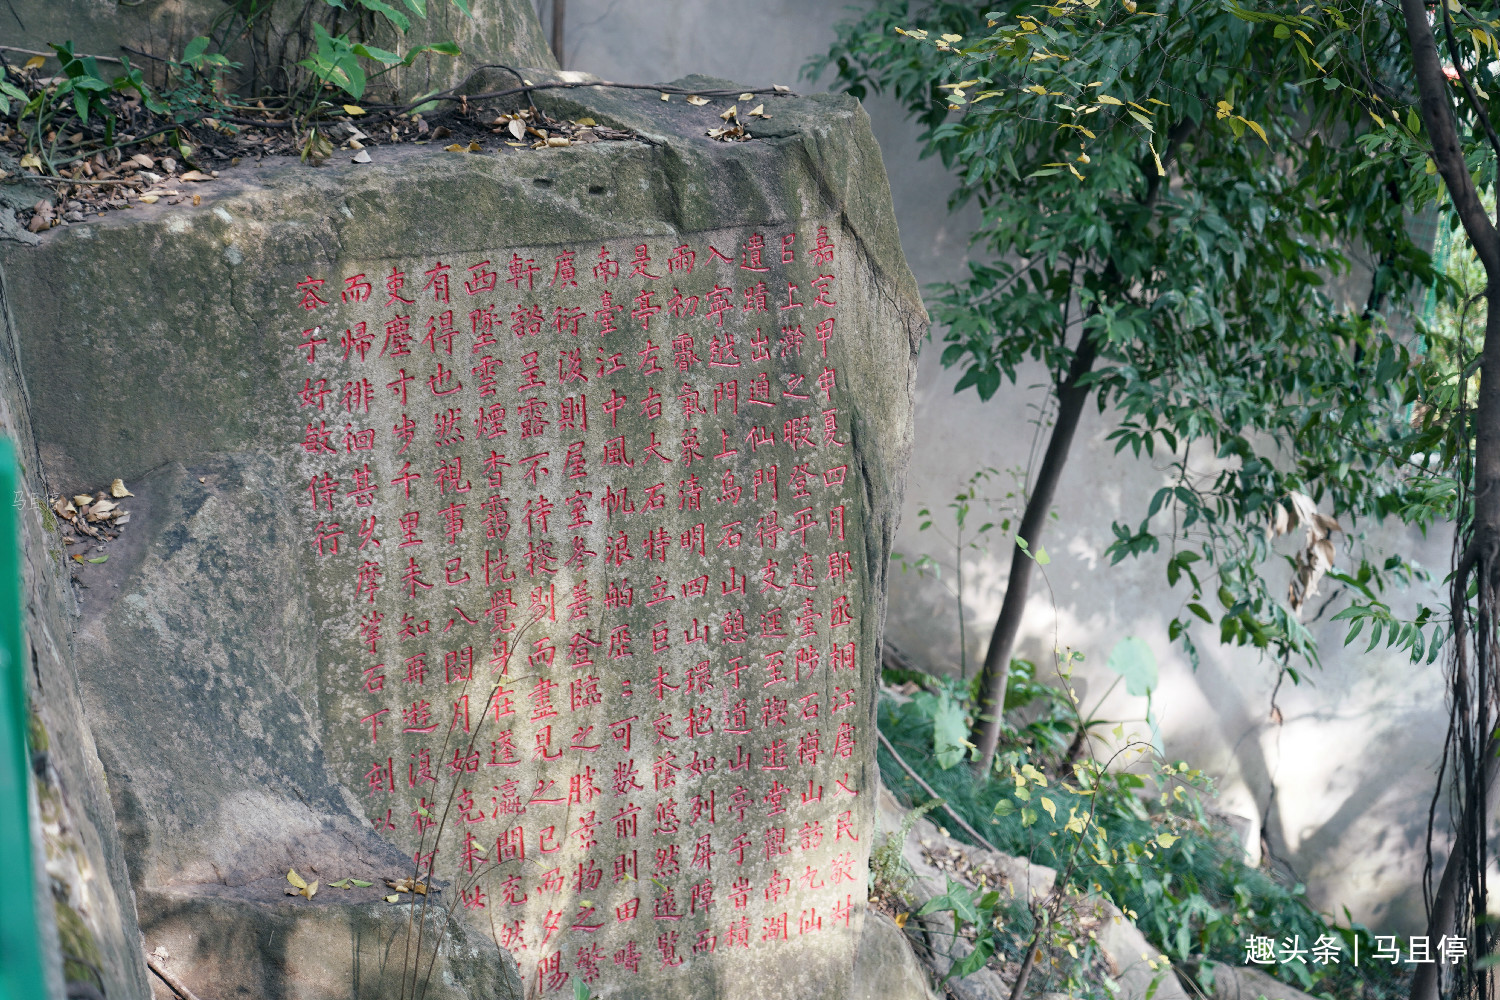 嘉定甲申夏四月郡丞桐江詹乂民敬叔
以上澣之暇登平遠臺陟石樽山訪九仙
遺蹟出通仙門得支逕至禊遊堂觀南湖
入寧越門上烏石山憩于道山亭于昔積
雨初霽氣象清明四山環抱如列屏障而
是亭左右大石特立巨木交蔭悠然遠覽
南臺江中風帆浪舶歷〻可数前則田疇
廣衍後則屋室参差登臨之勝景物之繁
軒豁呈露不待搜剔而盡見之已而夕陽
西墜雲煙杳靄恍覺身在蓬瀛間充然
有得也然視事已八閱月始克来此
吏塵寸步千里未知再遊復在何
而歸徘徊甚久摩挲石下刻以
容子好敏侍行
趣头条 | 马且停
马且停